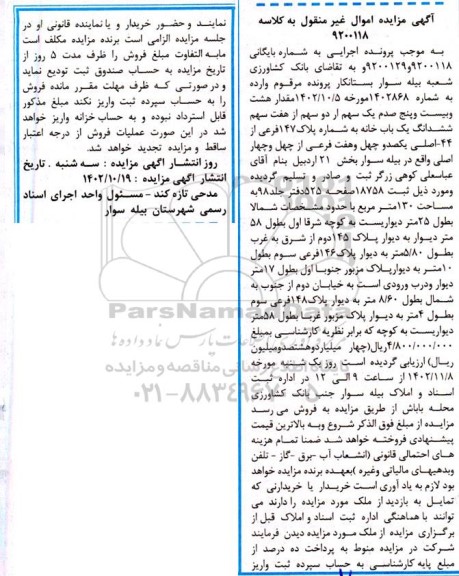 آگهی مزایده اموال غیر منقول به کلاسه
۹۲۰۰۱۱۸
به موجب پرونده اجرایی به شماره بایگانی
۹۲۰۰۱۱۸و۹۲۰۰۱۲۹و به تقاضای بانک کشاورزی
شعبه بیله سوار بستانکار پرونده مرقوم وارده
به شماره ۱۴۰۲۸۶۸مورخه ۱۴۰۲/۱۰/۵مقدار هشت
وبیست وپنج صدم یک سهم از دو سهم از هفت سهم
ششدانگ یک باب خانه به شماره پلاک۱۴۷فرعی از
۴۴-اصلی یکصدو چهل وهفت فرعی از چهل وچهار
اصلی واقع در بیله سوار بخش ۲۱ اردبیل بنام آقای
عباسعلی کوهی زرگر ثبت و صادر و تسلیم گردیده
ومورد ذیل ثبت ۱۸۷۵۸صفحه ۵۲۵دفتر جلد۹۸به
مساحت ۱۳۰متر مربع با حدود مشخصات شمالا
بطول ۲۵متر دیواریست به کوچه شرقا اول بطول ۵۸
متر دیوار به دیوار پلاک ۱۴۵دوم از شرق به غرب
بطول ۵/۸۰متر به دیوار پلاک۱۴۶فرعی سوم بطول
۱۰متر به دیوارپلاک مزبور جنوبا اول بطول ۱۷متر
دیوار ودرب ورودی است به خیابان دوم از جنوب به
شمال بطول ۸/۶۰ متر به دیوار پلاک۱۴۸فرعی سوم
بطول ۴متر به دیوار پلاک مزبور غربا بطول ۵۸متر
دیواریست به کوچه که برابر نظریه کارشناسی بمبلغ
۴/۸۰۰/۰۰۰/۰۰۰ریال(چهار میلیاردوهشتصدومیلیون
ریال) ارزیابی گردیده است روز یک شنبه مورخه
۱۴۰۲/۱۱/۸ از ساعت ۹ الی ۱۲ در اداره ثبت
اسناد و املاک بیله سوار جنب بانک کشاورزی
محله باباش از طریق مزایده به فروش می رسد
مزایده از مبلغ فوق الذکر شروع وبه بالاترین قیمت
پیشنهادی فروخته خواهد شد ضمنا تمام هزینه
های احتمالی قانونی (انشعاب آب -برق -گاز - تلفن
وبدهیهای مالیاتی وغیره )بعهده برنده مزایده خواهد
بود لازم به یاد آوری است خریدار یا خریدارنی که
تمایل به بازدید از ملک مورد مزایده را دارند می
توانند با هماهنگی اداره ثبت اسناد و املاک قبل از
برگزاری مزایده از ملک مورد مزایده دیدن فرمایند
شرکت در مزایده منوط به پرداخت ده درصد از
مبلغ پایه کارشناسی به حساب سپرده ثبت واریز
نمایند و حضور خریدار و یا نماینده قانونی او در
جلسه مزایده الزامی است برنده مزایده مکلف است
مابه التفاوت مبلغ فروش را ظرف مدت ۵ روز از
تاریخ مزایده به حساب صندوق ثبت تودیع نماید
و در صورتی که ظرف مهلت مقرر مانده فروش
را به حساب سپرده ثبت واریز نکند مبلغ مذکور
قابل استرداد نبوده و به حساب خزانه واریز خواهد
شد در این صورت عملیات فروش از درجه اعتبار
ساقط و مزایده تجدید خواهد شد.
روز انتشار آگهی مزایده : سه شنبه . تاریخ
انتشار آگهی مزایده : ۱۴۰۲/۱۰/۱۹
مدحی تازه کند - مسئول واحد اجرای اسناد
رسمی شهرستان بیله سوار
ParsNamadData
پایگاه اطلاع رسانی مناقصه و مزایده